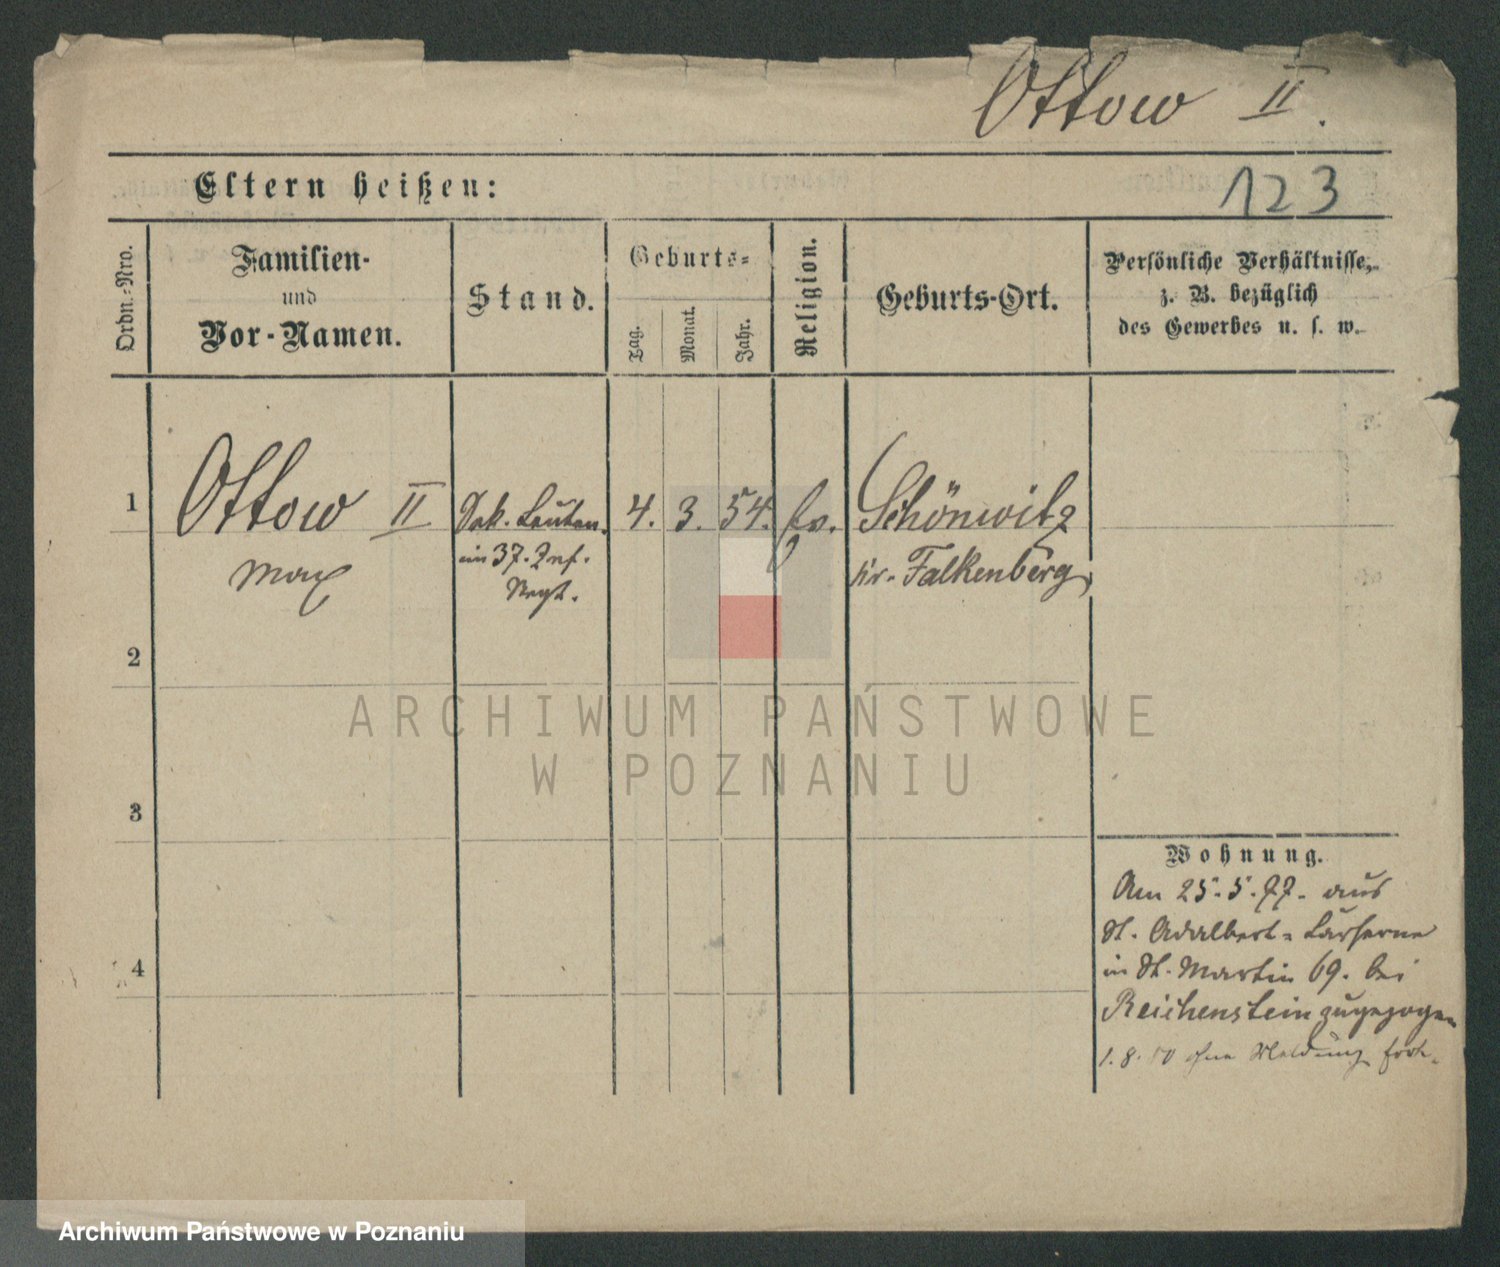 Ottow II.
Eltern heißen:
123
Ordn.-Nro.
Familien-
und
Vor-Namen.
Stand.
Geburts-
Tag.
Monat.
Jahr.
Religion.
Geburts-Ort.
Persönliche Verhältnisse,
z. B. bezüglich
des Gewerbes u. s. w.
1
Ottow II
Max
Sek. Leuten.
im 37. Inf.
Regt.
4. 3. 54. Ev.
Schönwitz
Kr. Falkenberg
2
3
4
ARCHIWUM PAŃSTWOWE
W POZNANIU
Wohnung.
Am 25.5.77. aus
St. Adalbert-Kaserne
in St. Martin 69. bei
Reichenstein zugezogen
1.8. ohne Meldung fort.
Archiwum Państwowe w Poznaniu